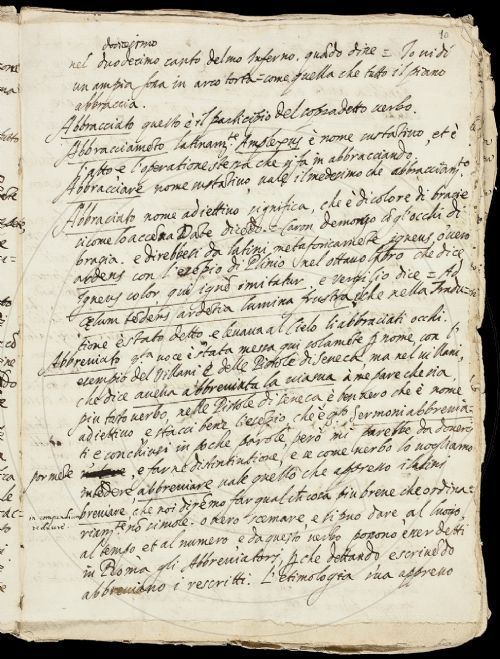 10
dodicesimo
nel duodecimo canto del suo Inferno, quãdo dice = Io vidi
un ampia fossa in arco torta = come quella che tutto il piano
abbraccia.
Abbracciato questo è il participio del sopradetto verbo
Abbracciamẽto latinam.te Amplexus è nome sustãtivo, et è
l'atto e l'operatione stessa che si fa in abbracciando.
Abbracciare nome sustãtivo, vale il medesimo che abbracciam.to
Abbraciato nome adiettivo significa, che è di colore di bragie
sicome lo accẽna Dãte dicẽdo = Caron demonio cõ gl'occhi di
bragia. e direbbesi da latini metaforicamẽte igneus, overo
ardens con l'esẽpio di Plinio nel ottavo libro che dice
Igneus color, qui ignẽ imitatur. e Vergilio dice = Ad
cælum tẽdens ardẽtia lumina frustra, il che nella Tradu-
tione è stato detto e levava al cielo li abbraciati occhi.
Abbreviato q.sta voce è stata messa qui solamẽte p nome, con l'
esempio del Villani e delle Pistole di Seneca ma nel Villani,
che dice avelia abbreviata la via sua à me pare che sia
piu tosto verbo, nelle Pistole di Seneca è ben vero che è nome
adiettivo e stacci bene l'esẽpio, che è q.sto, sermoni abbrevia-
ti e conchiusi in poche parole, però mi parebbe da doverci
por mẽte, e farne distintione, e se come verbo lo vogliamo
intẽdere abbreviare vale quello che appresso i latini
breviare che noi diremo far qualche cosa piu breve che ordina-
in compendium redigere.
riam.te nõ si mole. o vero scemare, e si può dare al luogo
al tempo et al numero e da questo verbo possono esser detti
in Roma gli Abbreviatori, p che dettando e scrivẽdo
abbreviano i rescritti. L'etimologia sua appresso